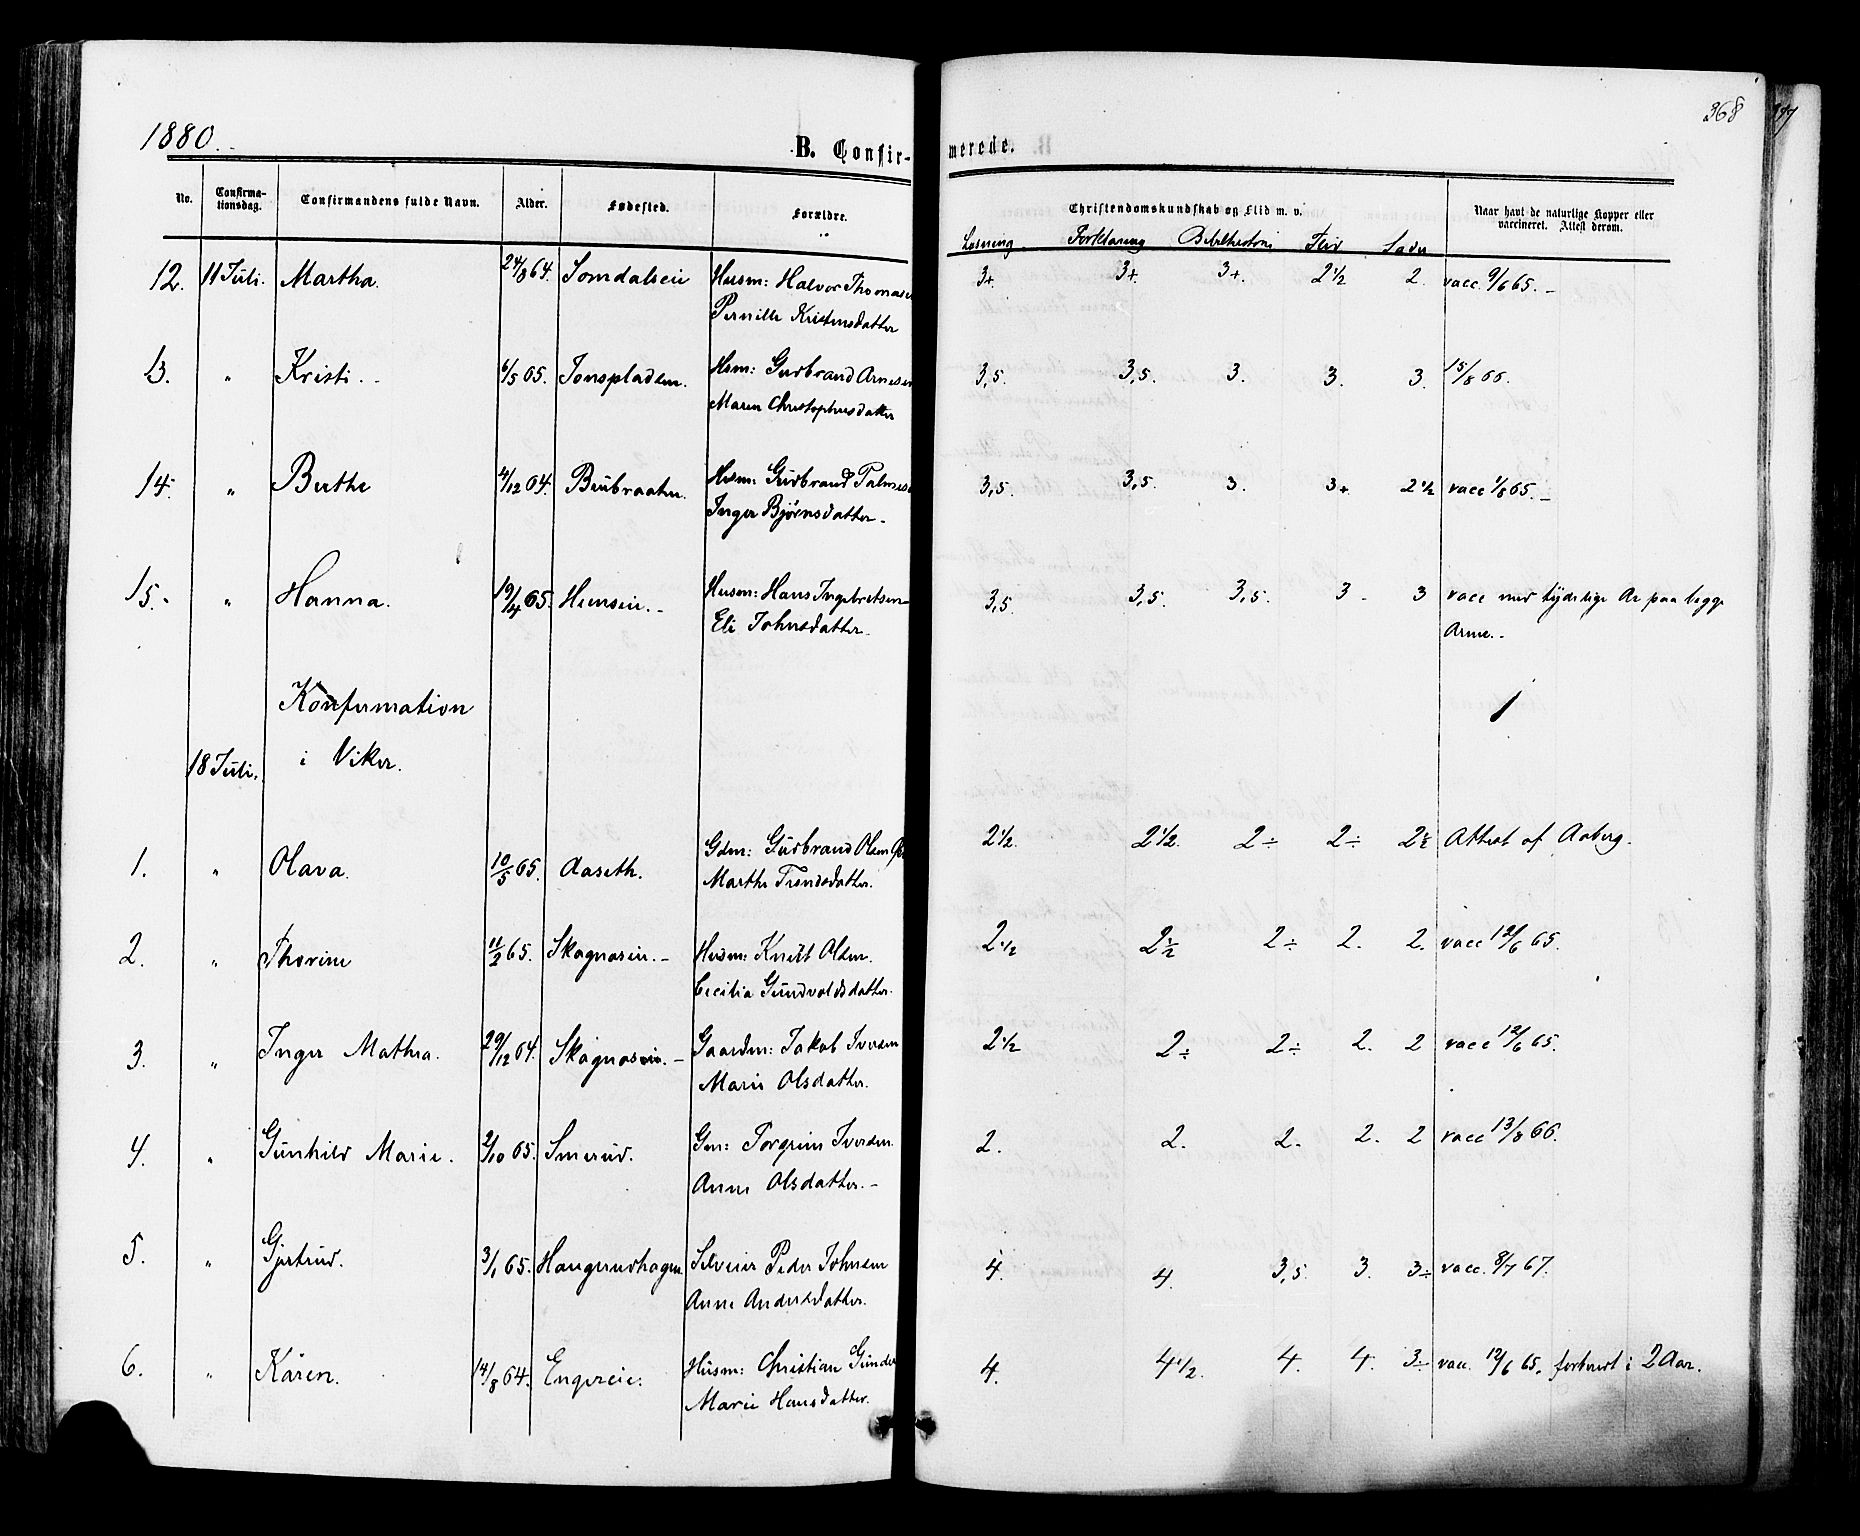 1880.
368
B. Confir-
merede.
No. Confirma-tionsdag. Confirmandens fulde Navn. Alder. Fødested. Forældre. Christendomskundskab og Flid m. v. Naar havt de naturlige Kopper eller vaccineret. Attest derom.
Læsning. Forklaring Bibelhistorie Flid
12. 11 Juli. Martha. 24/8 64. Somdalseie Husm: Halvor Thomasen 3+ 3+ 3+. 2 1/2 2. vacc. 9/6 65. –
Pernille Kristensdatter
13. " Kristi. 6/5 65. Jonspladsen. Hsm: Gudbrand Arnesen 3,5. 3,5. 3. 3. 3. 15/8 66.
Maren Christophersdatter
14. " Berthe 4/12 64. Bribraaten. Hsm: Gudbrand Palmesen 3,5. 3,5. 3. 3+ 2 1/2 vacc 1/8 65. –
Inger Bjørnsdatter –
15. " Hanna. 19/4 65. Hemseie. – Husm: Hans Ingebretsen 3,5. 3,5. 3,5. 3 3 vacc med tydelige Ar paa begge
Eli Johnsdatter. Arme. –
Konfirmation
18 Juli. i Viker.
1. " Olava. 10/5 65. Aaseth. Gdm: Gudbrand Olsen 2 1/2. 2 1/2. 2 ÷ 2 ÷ 2 1/2 Attest af Aaberg.
Marthe Trondsdatter.
2. " Thorine 11/2 65. Skagnæseie. – Husm: Knut Olsen. 2 1/2 2 1/2 2 ÷ 2. 2. vacc 12/6 65.
Cecilia Gundvoldsdatter.
3. " Inger Mathea. 29/12 64. Skagnæseie. – Gaardm: Jakob Iversen 2 1/2 2 ÷ 2 ÷ 2. 2 vacc 12/6 65.
Marie Olsdatter.
4. " Gunhild Marie. 2/10 65. Smerud. Gm: Torgrim Iversen. 2. 2. 2. 2. 2 vacc 13/8 66.
Anne Olsdatter. –
5. " Gjertrud. 3/1 65. Haugerudhagen Selveier Peder Johnsen 4. 4. 3,5. 3. 3÷ vacc. 8/7 67.
Anne Andersdatter.
6. " Karen. 14/8 64. Engereie. Husm: Christian Gunder 4. 4 1/2. 4. 4. 3÷ vacc. 12/6 65. forkuert i 2 Aar.
Marie Hansdatter.